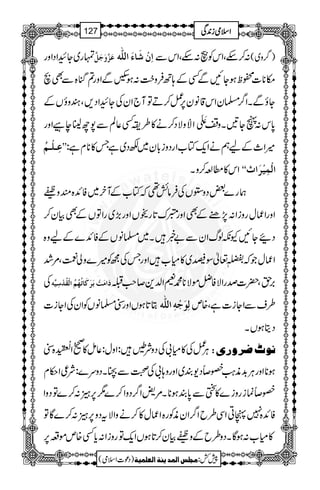 اسلامی زندگی 127
(گروی) نہ کر سکے، اس کو بیچ نہ سکے، اس سے اِنْ شَآءَ اللہ عَزَّوَجَلَّ تمہاری جائیداد اور
مکانات محفوظ ہو جائیں گے کسی کے ہاتھ فروخت نہ ہو سکیں گے اور تم گناہ سے بھی بچ
جاؤ گے۔ اگر مسلمان اس قانون پر عمل کرتے تو آج ان کی جائیدادیں، ہندوؤں کے
پاس نہ پہنچ جاتیں۔ وقف علی الاولاد کرنے کا طریقہ کسی عالم سے پوچھ لینا چاہیے اور
میراث کے لیے ہم نے ایک کتاب اردو زبان میں لکھ دی ہے جس کا نام ہے: "عِلْمُ
الْمِیْرَاث" اس کا مطالعہ کرو۔
ہمارے بعض دوستوں کی فرمائش تھی کہ کتاب کے آخر میں فائدہ مند وظیفے
اور اعمال روزانہ پڑھنے کے بھی اور متبرک تاریخوں اور بڑی راتوں کے بھی بیان کر
دیئے جائیں کیونکہ لوگ ان سے بے خبر ہیں۔ میں مسلمانوں کے فائدے کے لیے وہ
اعمال جو کہ بفضلہٖ تعالیٰ سو فیصدی کامیاب ہیں اور جن کی مجھ کو میرے ولی نعمت، مرشد
برحق، حضرت صدر الافاضل مولانا محمد نعیم الدین صاحب قبلہ دَامَتْ بَرَکَاتُہُمُ الْقُدْسِیَّہ کی
طرف سے اجازت ہے، خاص لِوَجْہِ اللہ بتاتا ہوں اور سنی مسلمانوں کو ان کی اجازت
دیتا ہوں۔
نوٹ ضروری: ہر عمل کی کامیابی کی دو شرطیں ہیں: اول: عامل کا صحیح العقیدہ سنی
ہونا اور ہر بد مذہب خصوصاً دیوبندی اور وہابی کی صحبت سے بچنا۔ دوسرے: شرعی احکام
خصوصاً نماز روزے کا سختی سے پابند ہونا۔ مریض اگر دوا کرے مگر پرہیز نہ کرے تو دوا
فائدہ نہیں پہنچاتی اسی طرح اگر ان مذکورہ اعمال کا کرنے والا یہ دو پرہیز نہ کرے گا تو
کامیاب نہ ہوگا۔ دو طرح کے وظیفے بیان کرتا ہوں ایک تو روزانہ یا کسی خاص موقعہ پر
پیش کش: مجلس المدینۃ العلمیۃ (دعوتِ اسلامی)